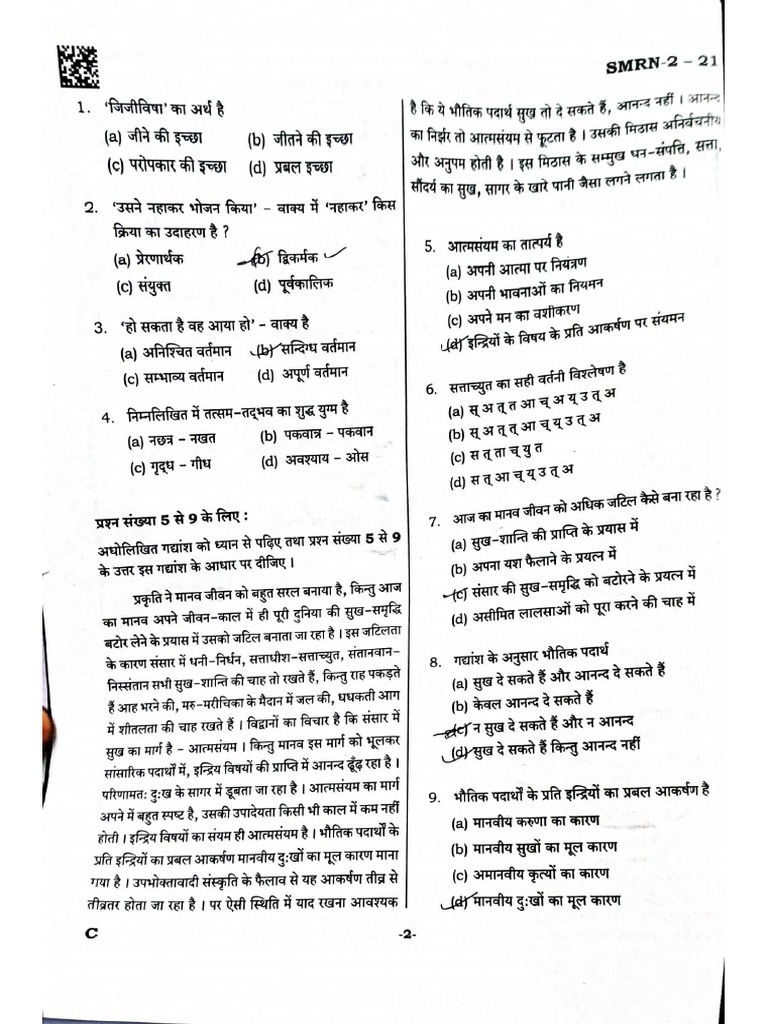 SMRN-2 – 21
1. ‘जिजीविषा’ का अर्थ है
(a) जीने की इच्छा (b) जीतने की इच्छा
(c) परोपकार की इच्छा (d) प्रबल इच्छा
2. ‘उसने नहाकर भोजन किया’ – वाक्य में ‘नहाकर’ किस
क्रिया का उदाहरण है ?
(a) प्रेरणार्थक (b) द्विकर्मक
(c) संयुक्त (d) पूर्वकालिक
3. ‘हो सकता है वह आया हो’ – वाक्य है
(a) अनिश्चित वर्तमान (b) सन्दिग्ध वर्तमान
(c) सम्भाव्य वर्तमान (d) अपूर्ण वर्तमान
4. निम्नलिखित में तत्सम-तद्भव का शुद्ध युग्म है
(a) नछत्र – नखत (b) पकवान्न – पकवान
(c) गृद्ध – गीध (d) अवश्याय – ओस
प्रश्न संख्या 5 से 9 के लिए :
अधोलिखित गद्यांश को ध्यान से पढ़िए तथा प्रश्न संख्या 5 से 9
के उत्तर इस गद्यांश के आधार पर दीजिए ।
प्रकृति ने मानव जीवन को बहुत सरल बनाया है, किन्तु आज
का मानव अपने जीवन-काल में ही पूरी दुनिया की सुख-समृद्धि
बटोर लेने के प्रयास में उसको जटिल बनाता जा रहा है । इस जटिलता
के कारण संसार में धनी-निर्धन, सत्ताधीश-सत्ताच्युत, संतानवान-
निस्संतान सभी सुख-शान्ति की चाह तो रखते हैं, किन्तु राह पकड़ते
हैं आह भरने की, मरु-मरीचिका के मैदान में जल की, धधकती आग
में शीतलता की चाह रखते हैं । विद्वानों का विचार है कि संसार में
सुख का मार्ग है – आत्मसंयम । किन्तु मानव इस मार्ग को भूलकर
सांसारिक पदार्थों में, इन्द्रिय विषयों की प्राप्ति में आनन्द ढूँढ़ रहा है ।
परिणामतः दुःख के सागर में डूबता जा रहा है । आत्मसंयम का मार्ग
अपने में बहुत स्पष्ट है, उसकी उपादेयता किसी भी काल में कम नहीं
होती । इन्द्रिय विषयों का संयम ही आत्मसंयम है । भौतिक पदार्थों के
प्रति इन्द्रियों का प्रबल आकर्षण मानवीय दुःखों का मूल कारण माना
गया है । उपभोक्तावादी संस्कृति के फैलाव से यह आकर्षण तीव्र से
तीव्रतर होता जा रहा है । पर ऐसी स्थिति में याद रखना आवश्यक
है कि ये भौतिक पदार्थ सुख तो दे सकते हैं, आनन्द नहीं । आनन्द
का निर्झर तो आत्मसंयम से फूटता है । उसकी मिठास अनिर्वचनीय
और अनुपम होती है । इस मिठास के सम्मुख धन-संपत्ति, सत्ता,
सौंदर्य का सुख, सागर के खारे पानी जैसा लगने लगता है ।
5. आत्मसंयम का तात्पर्य है
(a) अपनी आत्मा पर नियंत्रण
(b) अपनी भावनाओं का नियमन
(c) अपने मन का वशीकरण
(d) इन्द्रियों के विषय के प्रति आकर्षण पर संयमन
6. सत्ताच्युत का सही वर्तनी विश्लेषण है
(a) स् अ त् त आ च् अ य् उ त् अ
(b) स् अ त् त् आ च् य् उ त् अ
(c) स त् ता च् यु त
(d) स त् आ च् य् उ त् अ
7. आज का मानव जीवन को अधिक जटिल कैसे बना रहा है ?
(a) सुख-शान्ति की प्राप्ति के प्रयास में
(b) अपना यश फैलाने के प्रयत्न में
(c) संसार की सुख-समृद्धि को बटोरने के प्रयत्न में
(d) असीमित लालसाओं को पूरा करने की चाह में
8. गद्यांश के अनुसार भौतिक पदार्थ
(a) सुख दे सकते हैं और आनन्द दे सकते हैं
(b) केवल आनन्द दे सकते हैं
(c) न सुख दे सकते हैं और न आनन्द
(d) सुख दे सकते हैं किन्तु आनन्द नहीं
9. भौतिक पदार्थों के प्रति इन्द्रियों का प्रबल आकर्षण है
(a) मानवीय करुणा का कारण
(b) मानवीय सुखों का मूल कारण
(c) अमानवीय कृत्यों का कारण
(d) मानवीय दुःखों का मूल कारण
C
-2-